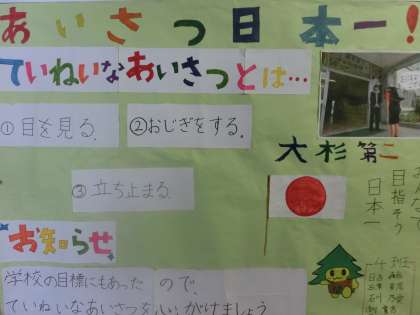 あいさつ日本一！
ていねいなあいさつとは…
①目を見る。
②おじぎをする。
③立ち止まる。
大杉第二
みんなで
目指そう
日本一
お知らせ
学校の目標にもあったので、
ていねいなあいさつを心がけましょう